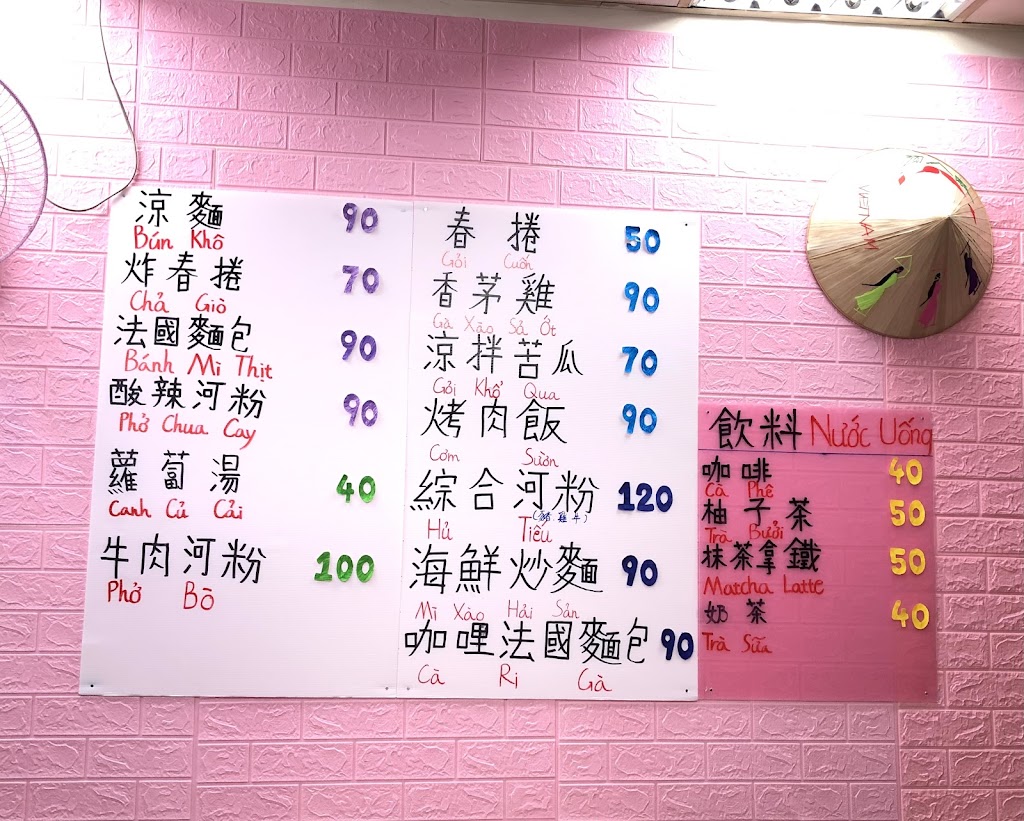 涼麵 90
Bún Khô
炸春捲 70
Chả Giò
法國麵包 90
Bánh Mì Thịt
酸辣河粉 90
Phở Chua Cay
蘿蔔湯 40
Canh Củ Cải
牛肉河粉 100
Phở Bò
春捲 50
Gỏi Cuốn
香茅雞 90
Gà Xào Sả Ớt
涼拌苦瓜 70
Gỏi Khổ Qua
烤肉飯 90
Cơm Sườn
綜合河粉 120
Hủ Tiếu
海鮮炒麵 90
Mì Xào Hải Sản
咖哩法國麵包 90
Cà Ri Gà
VIETNAM
飲料 Nước Uống
咖啡 40
Cà Phê
柚子茶 50
Trà Bưởi
抹茶拿鐵 50
Matcha Latte
奶茶 40
Trà Sữa